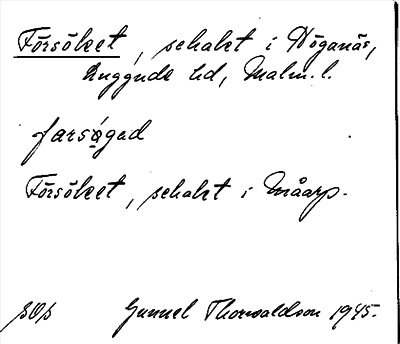 Försöket, schakt i Höganäs,
Luggude hd, Malm. l.
farsøged
Försöket, schakt i Måarp.
Gunnel Thorwaldson 1945.